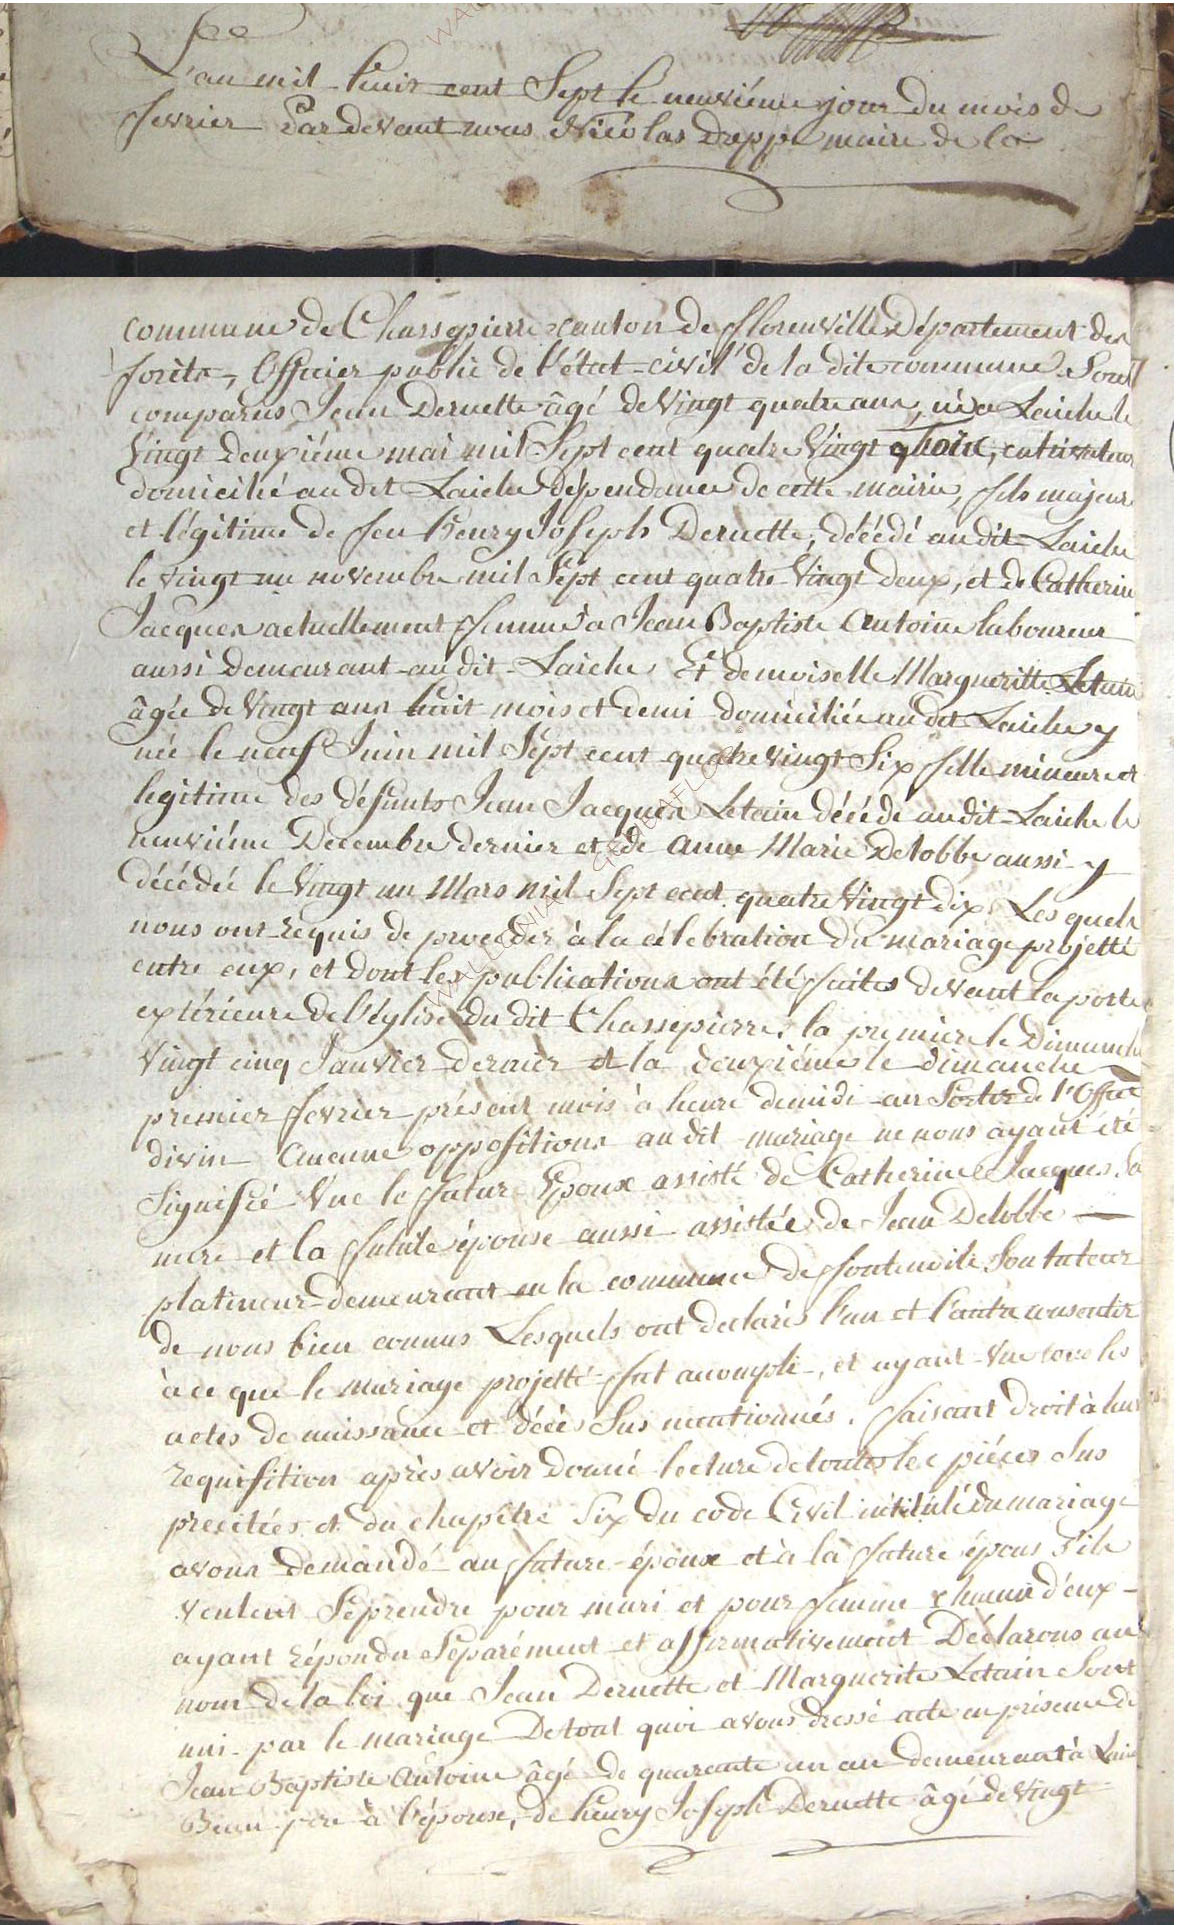 L'an mil huit cent Sept le neuviéme jour du mois de
fevrier Par devant nous Nicolas Dropp maire de la
commune de Chassepierre canton de florenville Département des
forêts, Officier public de l'état-civil de la dite commune Sont
comparus Jean Deruette âgé de Vingt quatre ans, né a Laiche le
Vingt deuxiéme mai mil Sept cent quatre Vingt cultivateur
domicilié au dit Laiche dépendance de cette mairie, fils majeur
et légitime de feu henry Joseph Deruette, décédé au dit Laiche
le vingt un novembre mil Sept cent quatre Vingt deux, et de Catherine
Jacques actuellement femme a Jean Baptiste Antoine laboureur
aussi Demeurant au dit Laiche Et demoiselle Margueritte Letain
âgée de Vingt ans huit mois et demi domiciliée au dit Laiche y
née le neuf Juin mil Sept cent quatre vingt Six fille mineure et
legitime des défunts Jean Jacques Letain décédé au dit Laiche le
neuviéme Decembre dernier et de Anne Marie Delobbe aussi y
décédée le Vingt un Mars mil Sept cent quatre Vingt dix, Les quels
nous ont requis de proceder à la célebration du mariage projetté
entre eux, et dont les publications ont été faites devant la porte
extérieure de l'église du dit Chassepierre, la premiere le Dimanche
Vingt cinq Janvier dernier et la deuxiéme le dimanche
premier fevrier présent mois à heure de midi au Sortir de l'Office
divin Aucune oppositions au dit mariage ne nous ayant été
Signifié Vue le futur Epoux assisté de Catherine Jacques, Sa
mere et la future épouse aussi assistée de Jean Delobbe
platineur demeurant en la commune de fontenoile Son tuteur
de nous bien connus Lesquels ont declarés l'un et l'autre consentir
à ce que le mariage projetté fut accompli, et ayant Vue tous les
actes de naissance et décès Sus mentionnés, faisant droit à leur
requisition après avoir donné lecture de toutes les piéces Sus
precitées et du chapître Six du code Civil intitulé du mariage
avons demandé au future époux et à la future épous S'ils
veulent Se prendre pour mari et pour femme chacun d'eux
ayant répondu Séparément et affirmativement Déclarons au
nom de la loi que Jean Deruette et Marguerite Letain Sont
uni par le mariage De tout quoi avons dressé acte en présence de
Jean Baptiste Antoine âgé de quarante un an demeurant à Laiche
Beau pere à l'épouse, de henry Joseph Deruette âgé de Vingt